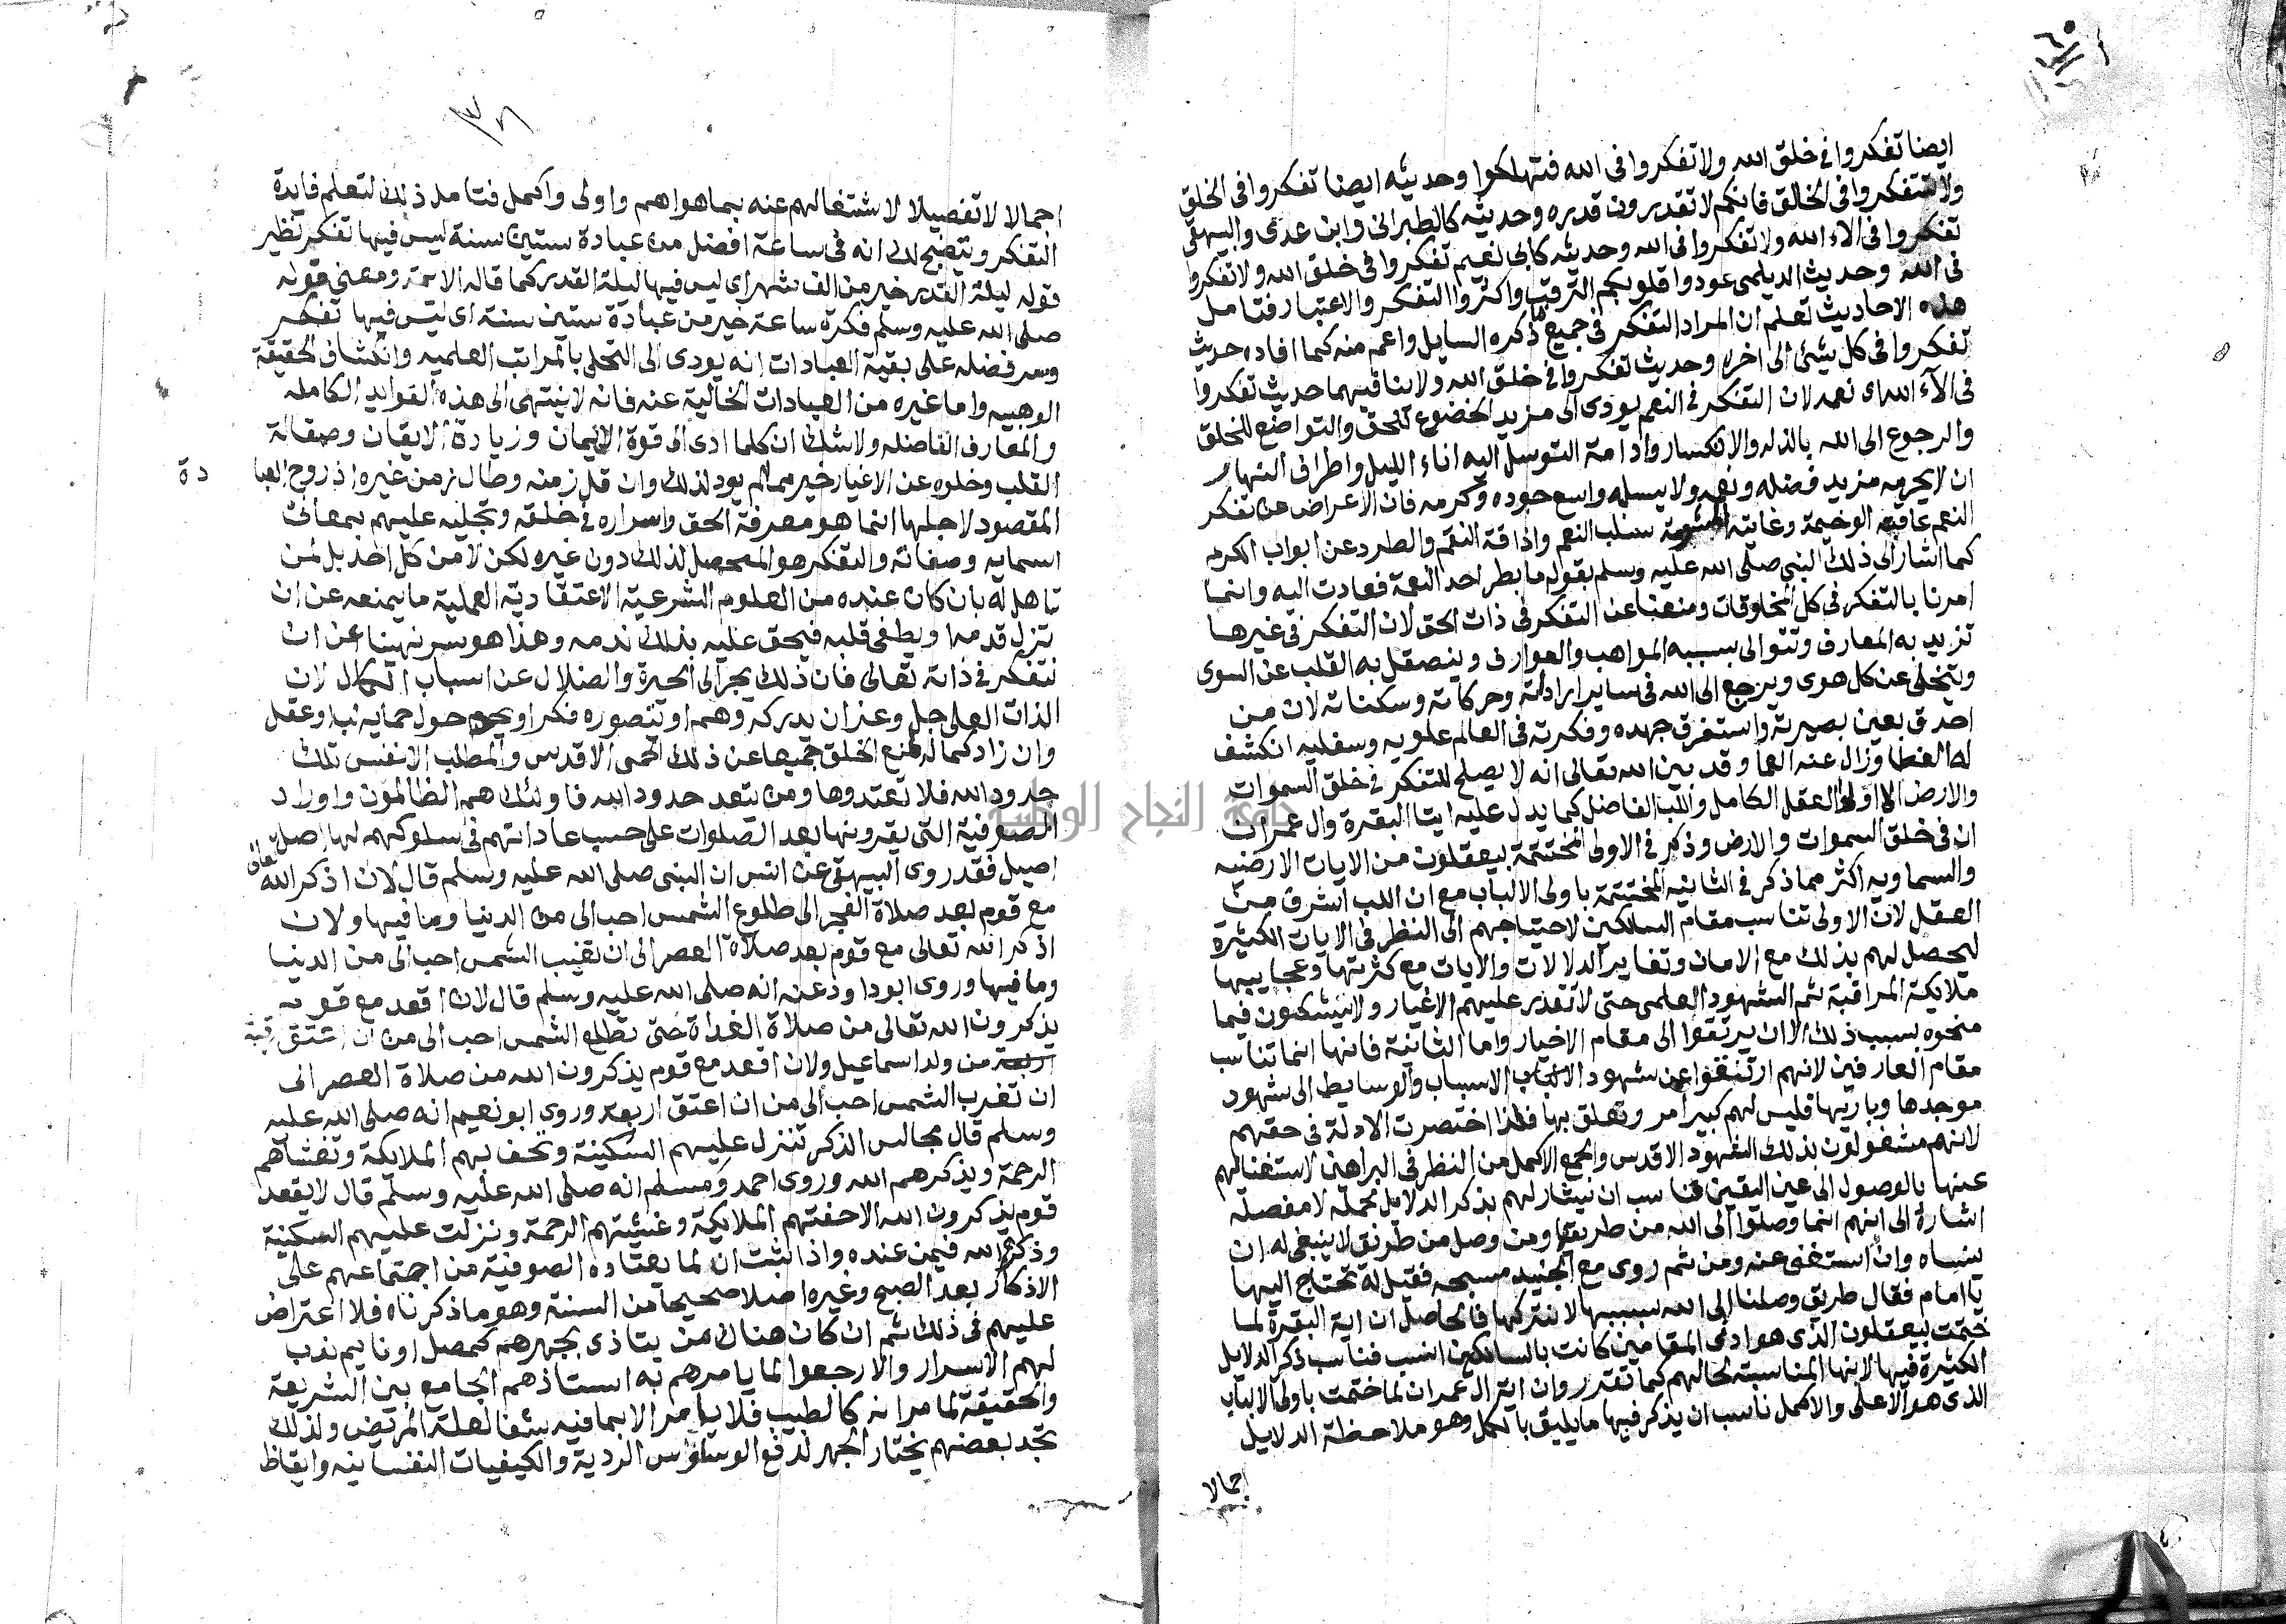 ايضا تفكروا في خلق الله ولا تفكروا في الله فتهلكوا وحديثه ايضا تفكروا في الخلق
ولا تتفكروا في الخالق فانكم لا تقدرون قدره وحديثه كالطبراني وابن عدى والبيهقى
تفكروا في الاء الله ولا تفكروا في الله وحديثه كابى نعيم تفكروا في خلق الله ولا تفكروا
في الله وحديث الديلمى عودوا قلوبكم الترقب واكثروا التفكر والاعتبار فتامل
هذه الاحاديث تعلم ان المراد التفكر في جميع ما ذكره السايل واعم منه كما افاده حديث
تفكروا في كل شئ الى اخره وحديث تفكروا في خلق الله ولا ينافيهما حديث تفكروا
في الآء الله اى نعمه لان التفكر في النعم يودى الى مزيد الخضوع للحق والتواضع للخلق
والرجوع الى الله بالذله والانكسار وادامة التوسل اليه اناء الليل واطراف النهار
ان لا يحرمه مزيد فضله ونعمه ولا يسلبه واسع جوده وكرمه فان الاعراض عن تفكر
النعم عاقبته الوخيمة وغايته المشومة سلب النعم واذاقة النقم والطرد عن ابواب الكرم
كما اشار الى ذلك النبى صلى الله عليه وسلم بقوله ما بطر احد النعمة فعادت اليه وانما
امرنا بالتفكر في كل المخلوقات ومنعنا عن التفكر في ذات الحق لان التفكر في غيرها
تزيد به المعارف وتتوالى بسببه المواهب والعوارف وينصقل به القلب عن السوى
ويتخلى عن كل هوى ويرجع الى الله في ساير اراداته وحركاته وسكناته لان من
احدق بعين بصيرته واستغرق جهده وفكرته في العالم علويه وسفليه انكشف
له الغطا وزال عنه العما وقد بين الله تعالى انه لا يصلح للتفكر في خلق السموات
والارض الا اولوا العقل الكامل واللب الفاضل كما يدل عليه ايتا البقرة وال عمران
ان في خلق السموات والارض وذكر في الاولى المختتمة بيعقلون من الايات الارضيه
والسماويه اكثر مما ذكر في الثانيه المختتمة باولى الالباب مع ان اللب اشرف من
العقل لان الاولى تناسب مقام السالكين لاحتياجهم الى النظر في الايات الكثيرة
ليحصل لهم بذلك مع الامان وتغاير الدلالات والايات مع كثرتها وعجايبها
ملايكة المراقبة ثم الشهود العلمى حتى لا تقذر عليهم الاغيار ولا يتشككون فيما
منحوه بسبب ذلك الا ان يرتقوا الى مقام الاخيار واما الثانية فانها انما تناسب
مقام العارفين لانهم ارتقوا عن شهود الاسباب والوسايط الى شهود
موجدها وباريها فليس لهم كبير أمر وتعلق بها فلذا اختصرت الادلة في حقهم
لانهم مشغولون بذلك الشهود الاقدس والجمع الاكمل من النظر في البراهين لاستغنائهم
عنها بالوصول الى عين اليقين فناسب ان يشار لهم بذكر الدلايل مجملة لا مفصلة
اشارة الى انهم انما وصلوا الى الله من طريقها ومن وصل من طريق لا ينبغى له ان
ينساه وان استغنى عنه ومن ثم روى مع الجنيد مسبحه فقيل له تحتاج اليها
يا امام فقال طريق وصلنا الى الله بسببها لا نتركها فالحاصل ان اية البقرة لما
ختمت بيعقلون الذى هو ادنى المقامين كانت بالسالكين انسب فناسب ذكر الدلايل
الكثيرة فيها لانها المناسبة لحالهم كما تقرر وان اية ال عمران لما ختمت باولى الالباب
الذى هو الاعلى والاكمل ناسب ان يذكر فيها ما يليق بالكمل وهو ملاحظة الدلايل
اجمالا
اجمالا لا تفصيلا لاشتغالهم عنه بما هو اهم واولى واكمل فتامل ذلك لتعلم فايدة
التفكر ويتضح لك انه في ساعة افضل من عبادة ستين سنة ليس فيها تفكر نظير
قوله ليلة القدر خير من الف شهر اى ليس فيها ليلة القدر كما قاله الايمة ومعنى قوله
صلى الله عليه وسلم فكرة ساعة خير من عبادة ستين سنة اى ليس فيها تفكر
وسر فضله على بقية العبادات انه يودى الى التحلى بالمراتب العلميه وانكشاف الحقيقة
الوهبيه واما غيره من العبادات الخالية عنه فانه لا ينتهى الى هذه الفوايد الكامله
والمعارف الفاضله ولا شك ان كلما ادى الى قوة الايمان وزيادة الايقان وصقالة
القلب وخلوه عن الاغيار خير مما لم يود لذلك وان قل زمنه وطال زمن غيره اذ روح العبا
دة
المقصود لاجلها انما هو معرفة الحق واسراره في خلقه وتجليه عليهم بمعانى
اسمايه وصفاته والتفكر هو المحصل لذلك دون غيره لكن لا من كل احد بل لمن
تاهل له بان كان عنده من العلوم الشرعية الاعتقادية العملية ما يمنعه عن ان
تزل قدمه او يطغى قلبه فيحق عليه بذلك ندمه وهذا هو سر نهينا عن ان
نتفكر في ذاته تعالى فان ذلك يجر الى الحيرة والضلال عن اسباب الكمال لان
الذات العلى جل وعز ان يدركه وهم او تتصوره فكر او يحوم حول حمايه نبا وعقل
وان زاد كماله فمنع الخلق جميعا عن ذلك الحمى الاقدس والمطلب الانفس تلك
حدود الله فلا تعتدوها ومن يتعد حدود الله فاولئك هم الظالمون واوراد
الصوفية التى يقرونها بعد الصلوات على حسب عاداتهم في سلوكهم لها اصل
اصيل فقد روى البيهقى عن انس ان النبى صلى الله عليه وسلم قال لان اذكر الله تعالى
مع قوم بعد صلاة الفجر الى طلوع الشمس احب الى من الدنيا وما فيها ولان
اذكر الله تعالى مع قوم بعد صلاة العصر الى ان تغيب الشمس احب الى من الدنيا
وما فيها وروى ابو داود عنه انه صلى الله عليه وسلم قال لان اقعد مع قوم
يذكرون الله تعالى من صلاة الغداة حتى تطلع الشمس احب الى من ان اعتق رقبة
اربعة من ولد اسماعيل ولان اقعد مع قوم يذكرون الله من صلاة العصر الى
ان تغرب الشمس احب الى من ان اعتق اربعة وروى ابو نعيم انه صلى الله عليه
وسلم قال مجالس الذكر تتنزل عليهم السكينة وتحف بهم الملايكة وتغشاهم
الرحمة ويذكرهم الله وروى احمد ومسلم انه صلى الله عليه وسلم قال لا يقعد
قوم يذكرون الله الا حفتهم الملايكة وغشيتهم الرحمة ونزلت عليهم السكينة
وذكرهم الله فيمن عنده واذا ثبت ان لما يعتاده الصوفية من اجتماعهم على
الاذكار بعد الصبح وغيره اصلا صحيحا من السنة وهو ما ذكرناه فلا اعتراض
عليهم في ذلك ثم ان كان هناك من يتاذى بجهرهم كمصل او نايم ندب
لهم الاسرار والا رجعوا لما يامرهم به استاذهم الجامع بين الشريعة
والحقيقة لما مر انه كالطبيب فلا يامر الا بما فيه شفا لعلة المريض ولذلك
تجد بعضهم يختار الجهر لدفع الوساوس الردية والكيفيات النفسانيه وايقاظ
جامعة النجاح الوطنية